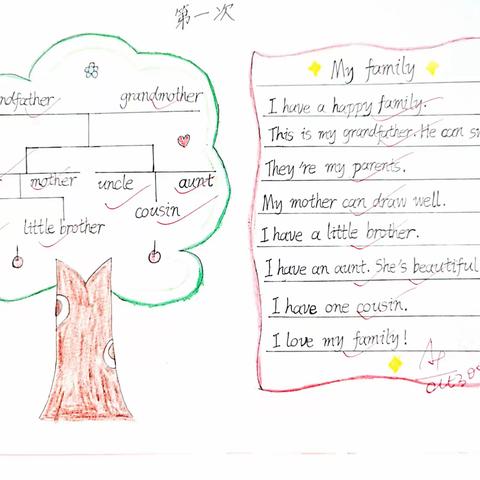 第一次
grandmother
mother uncle aunt
cousin
little brother
My family
I have a happy family.
This is my grandfather. He can
They're my parents.
My mother can draw well.
I have a little brother.
I have an aunt. She's beautiful
I have one cousin.
I love my family!